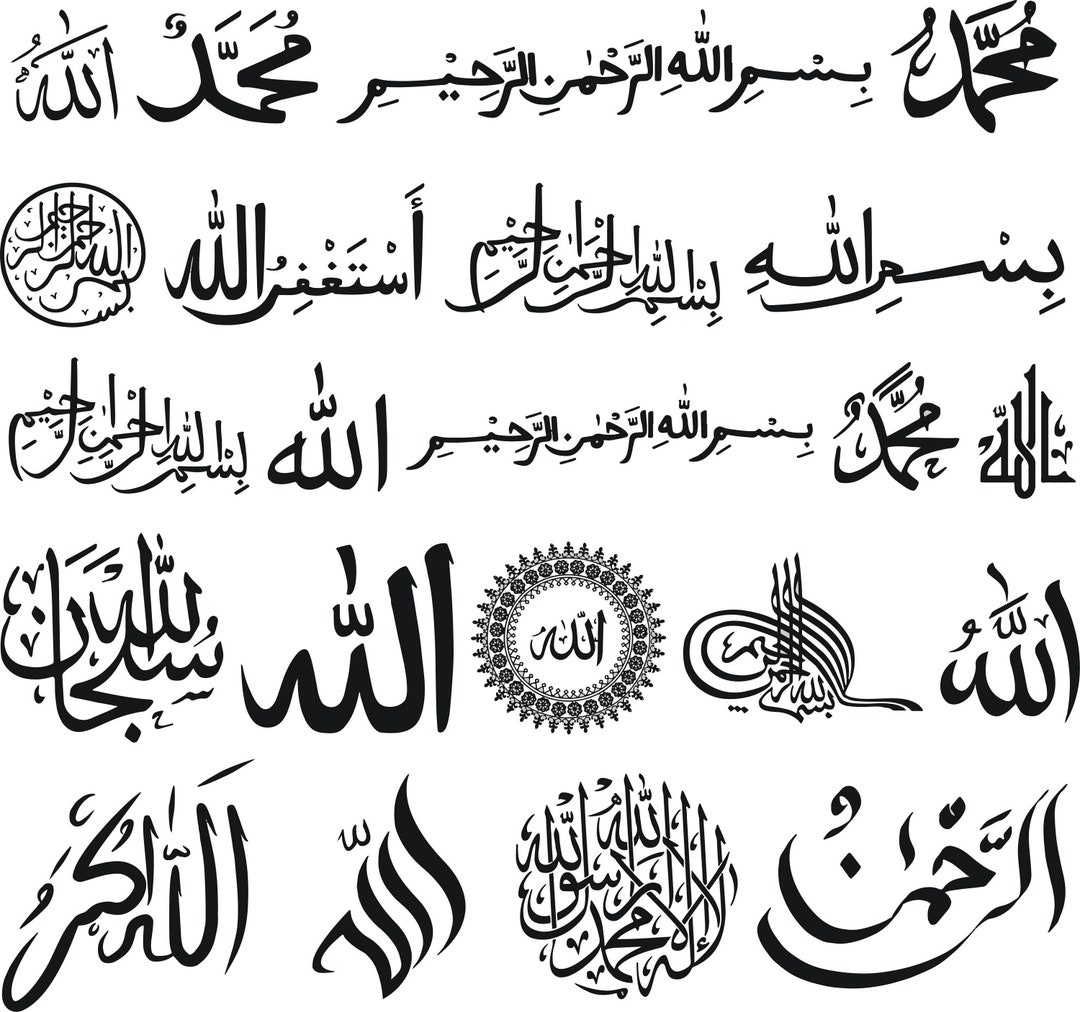 مُحَمَّد
بِسْمِ اللهِ الرَّحْمٰنِ الرَّحِيْمِ
مُحَمَّدٌ
اللّٰهُ
بِسْمِ اللهِ
بِسْمِ اللهِ الرَّحْمٰنِ الرَّحِيْمِ
أَسْتَغْفِرُ الله
بسم الله الرحمن الرحيم
الله
مُحَمَّدٌ
بِسْمِ اللهِ الرَّحْمٰنِ الرَّحِيْمِ
الله
بِسْمِ اللهِ الرَّحْمٰنِ الرَّحِيْمِ
اللّٰهُ
بسم الله الرحمن الرحيم
اللّٰهُ
الله
سُبْحَانَ اللّٰه
الرَّحْمٰنُ
لا إله إلا الله محمد رسول الله
اللّٰه
اللّٰه اكبرُ